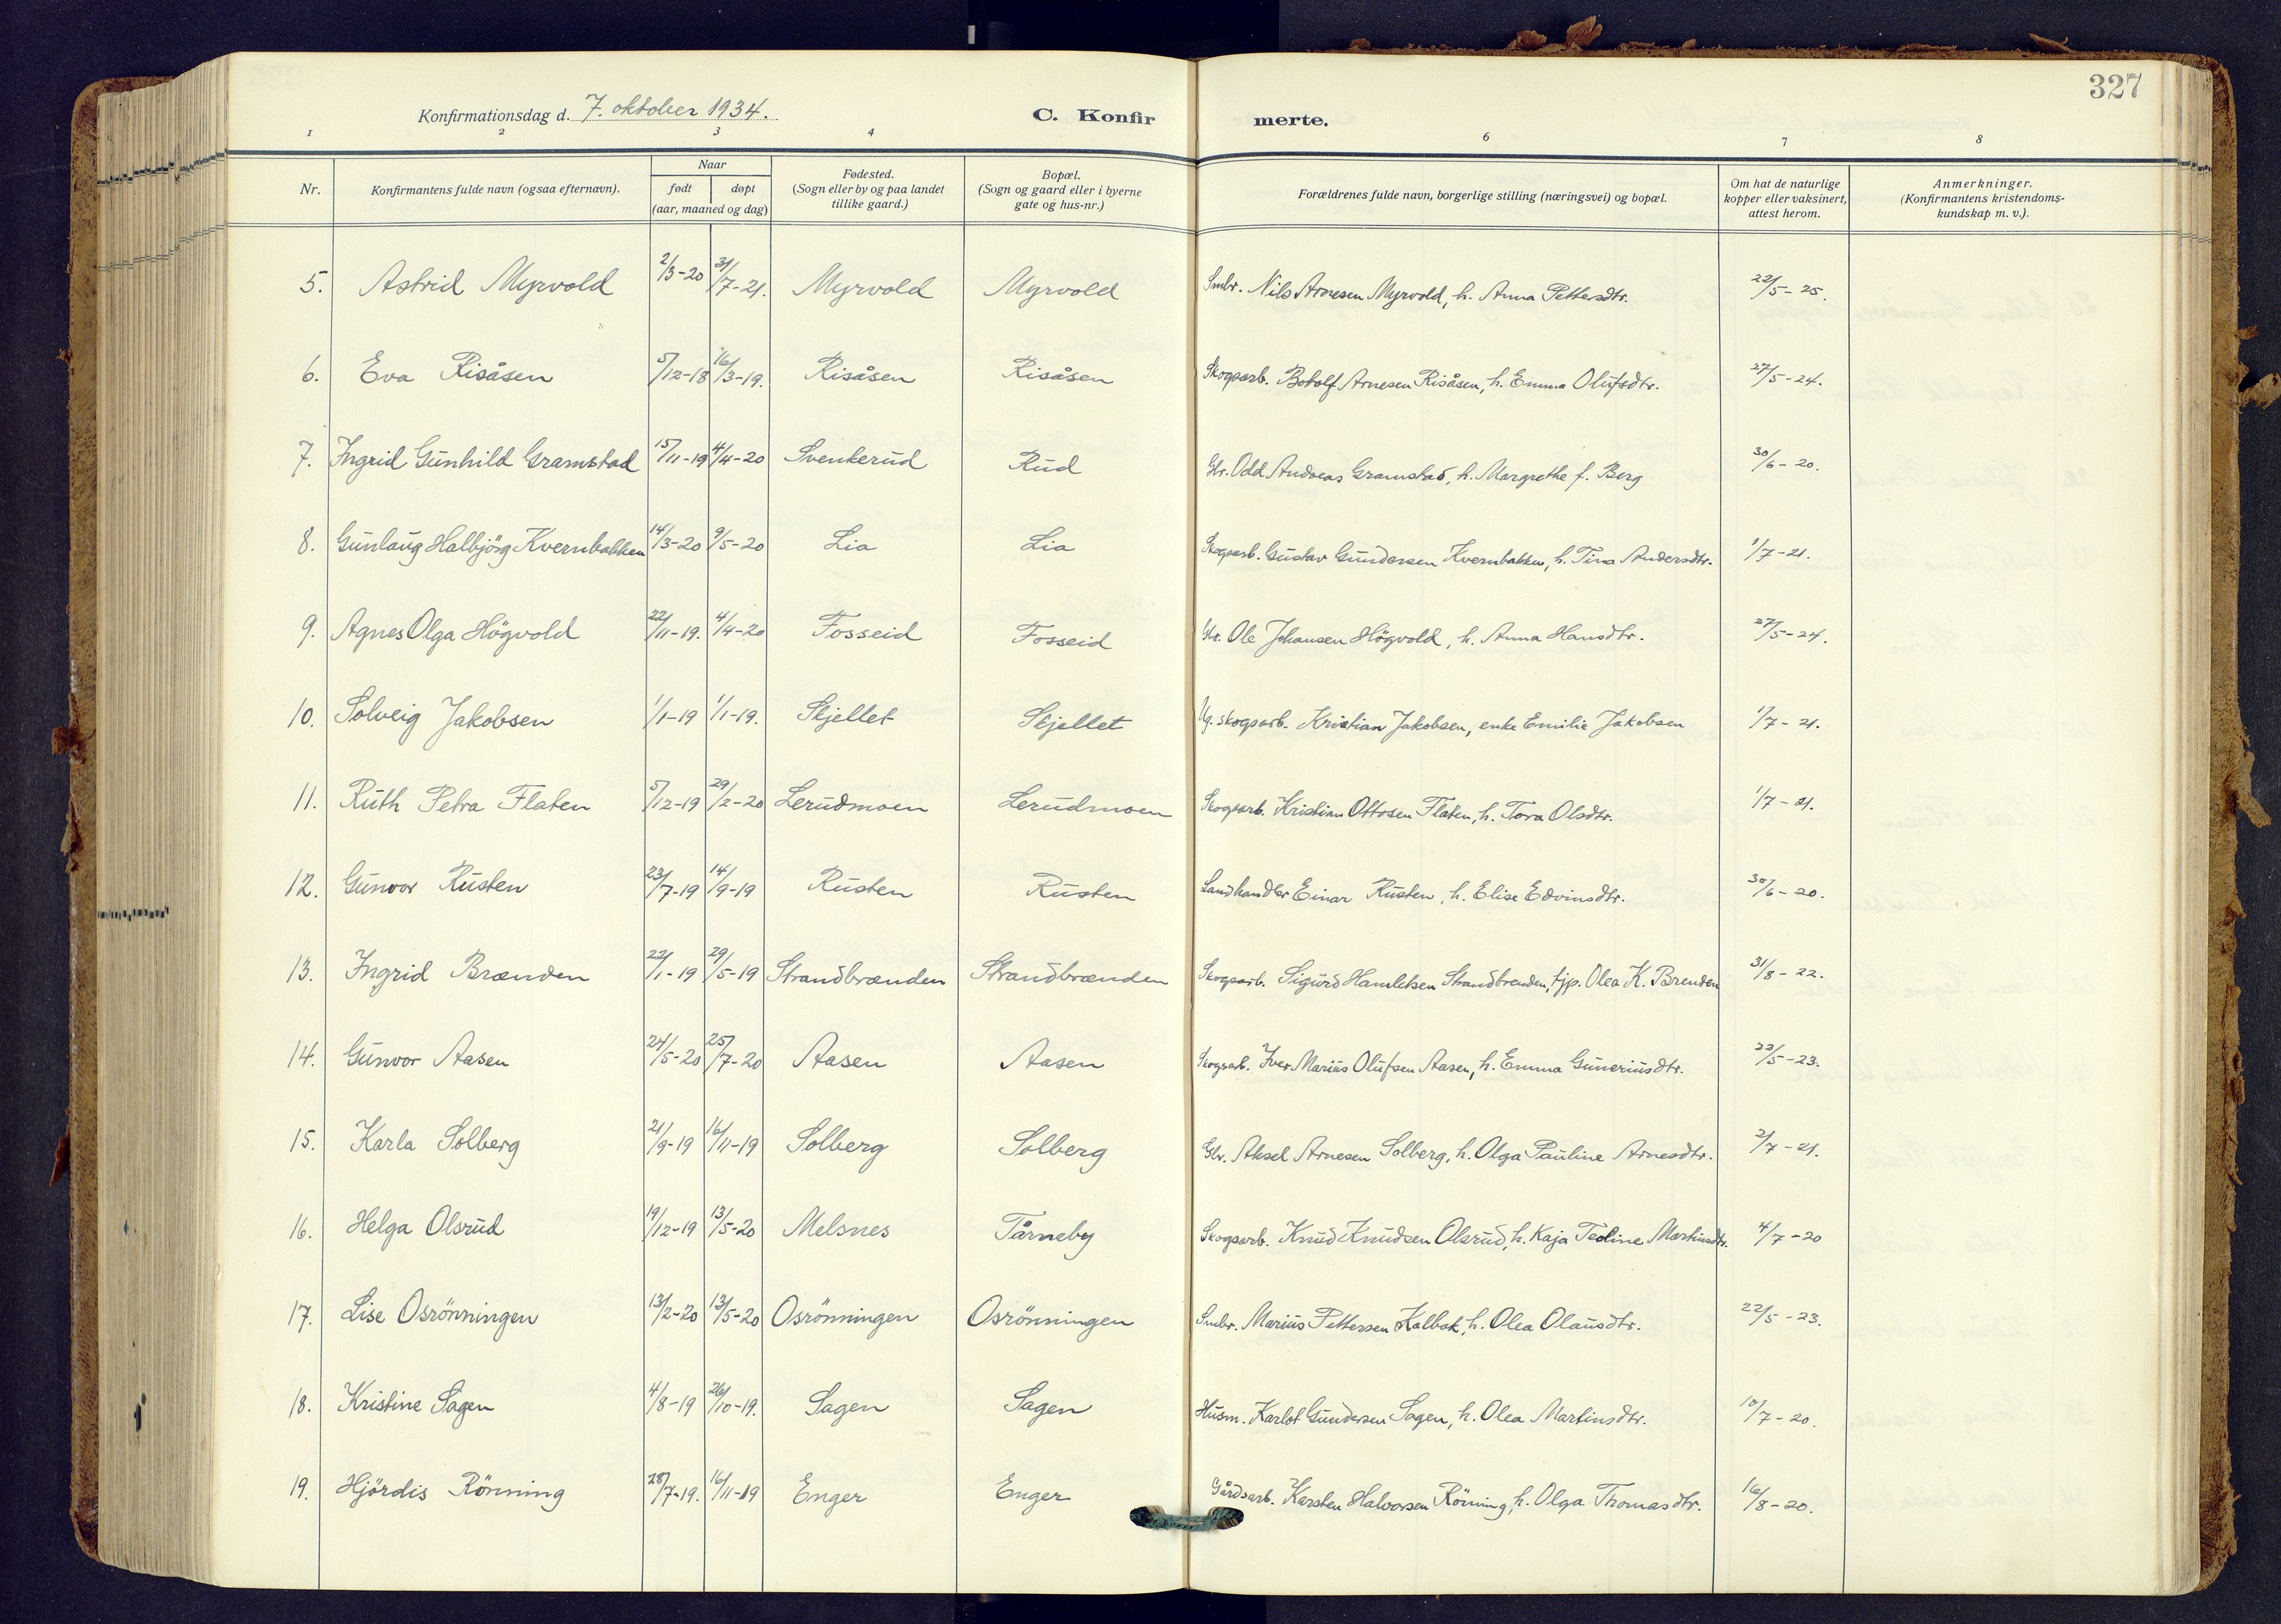 327
Konfirmationsdag d. 7. oktober 1934. C. Konfir merte.
1 2 3 4 6 7 8
Nr. Konfirmantens fulde navn (ogsaa efternavn). Naar født døpt (aar, maaned og dag) Fødested. (Sogn eller by og paa landet tillike gaard.) Bopæl. (Sogn og gaard eller i byerne gate og hus-nr.) Forældrenes fulde navn, borgerlige stilling (næringsvei) og bopæl. Om hat de naturlige kopper eller vaksinert, attest herom. Anmerkninger. (Konfirmantens kristendoms-kundskap m. v.).
5. Astrid Myrvold 2/3-20 31/7-21. Myrvold Myrvold Smbr. Nils Arnesen Myrvold, h. Anna Pettersdtr. 22/5-25.
6. Eva Risåsen 5/12-18 16/3-19. Risåsen Risåsen Skogsarb. Botolf Arnesen Risåsen, h. Emma Olufsdtr. 27/5-24.
7. Ingrid Gunhild Gramstad 15/11-19 4/4-20 Svenkerud Rud Gbr. Odd Andreas Gramstad, h. Margrethe f. Berg 30/6-20.
8. Gunlaug Halbjörg Kvernbakken 14/3-20 9/5-20 Lia Lia Skogsarb. Gustav Gundersen Kvernbakken, h. Tina Andersdtr. 1/7-21.
9. Agnes Olga Högvold 22/11-19. 4/4-20 Fosseid Fosseid Gbr. Ole Johansen Högvold, h. Anna Hansdtr. 27/5-24.
10. Solveig Jakobsen 1/1-19 1/1-19. Skjellet Skjellet Ug. skogsarb. Kristian Jakobsen, enke Emilie Jakobsen 1/7-21.
11. Ruth Petra Flaten 5/12-19 29/2-20 Lerudmoen Lerudmoen Skogsarb. Kristian Ottosen Flaten, h. Tora Olsdtr. 1/7-21.
12. Gunvor Rusten 23/7-19 14/9-19 Rusten Rusten Landhandler Einar Rusten, h. Elise Edvinsdtr. 30/6-20.
13. Ingrid Brænden 22/1-19 29/5-19 Strandbrænden Strandbrænden Skogsarb. Sigurd Hamletsen Strandbrenden, tjp. Olea K. Brenden 31/8-22.
14. Gunvor Aasen 24/5-20 25/7-20 Aasen Aasen Skogsarb. Iver Marius Olufsen Aasen, h. Emma Guneriusdtr. 22/5-23.
15. Karla Solberg 21/9-19 16/11-19 Solberg Solberg Gbr. Aksel Arnesen Solberg, h. Olga Pauline Arnesdtr. 2/7-21.
16. Helga Olsrud 19/12-19 13/5-20 Melsnes Tårneby Skogsarb. Knud Knudsen Olsrud, h. Kaja Teoline Martinsdtr. 4/7-20
17. Lise Osrönningen 13/2-20 13/5-20 Osrönningen Osrönningen Smbr. Marius Pettersen Kalbak, h. Olea Olausdtr. 22/5-23.
18. Kristine Sagen 4/8-19 26/10-19. Sagen Sagen Husm. Karlot Gundersen Sagen, h. Olea Martinsdtr. 10/7-20.
19. Hjördis Rönning 28/7-19. 16/11-19 Enger Enger Gårdsarb. Karsten Halvorsen Rönning, h. Olga Thomasdtr. 16/8-20.